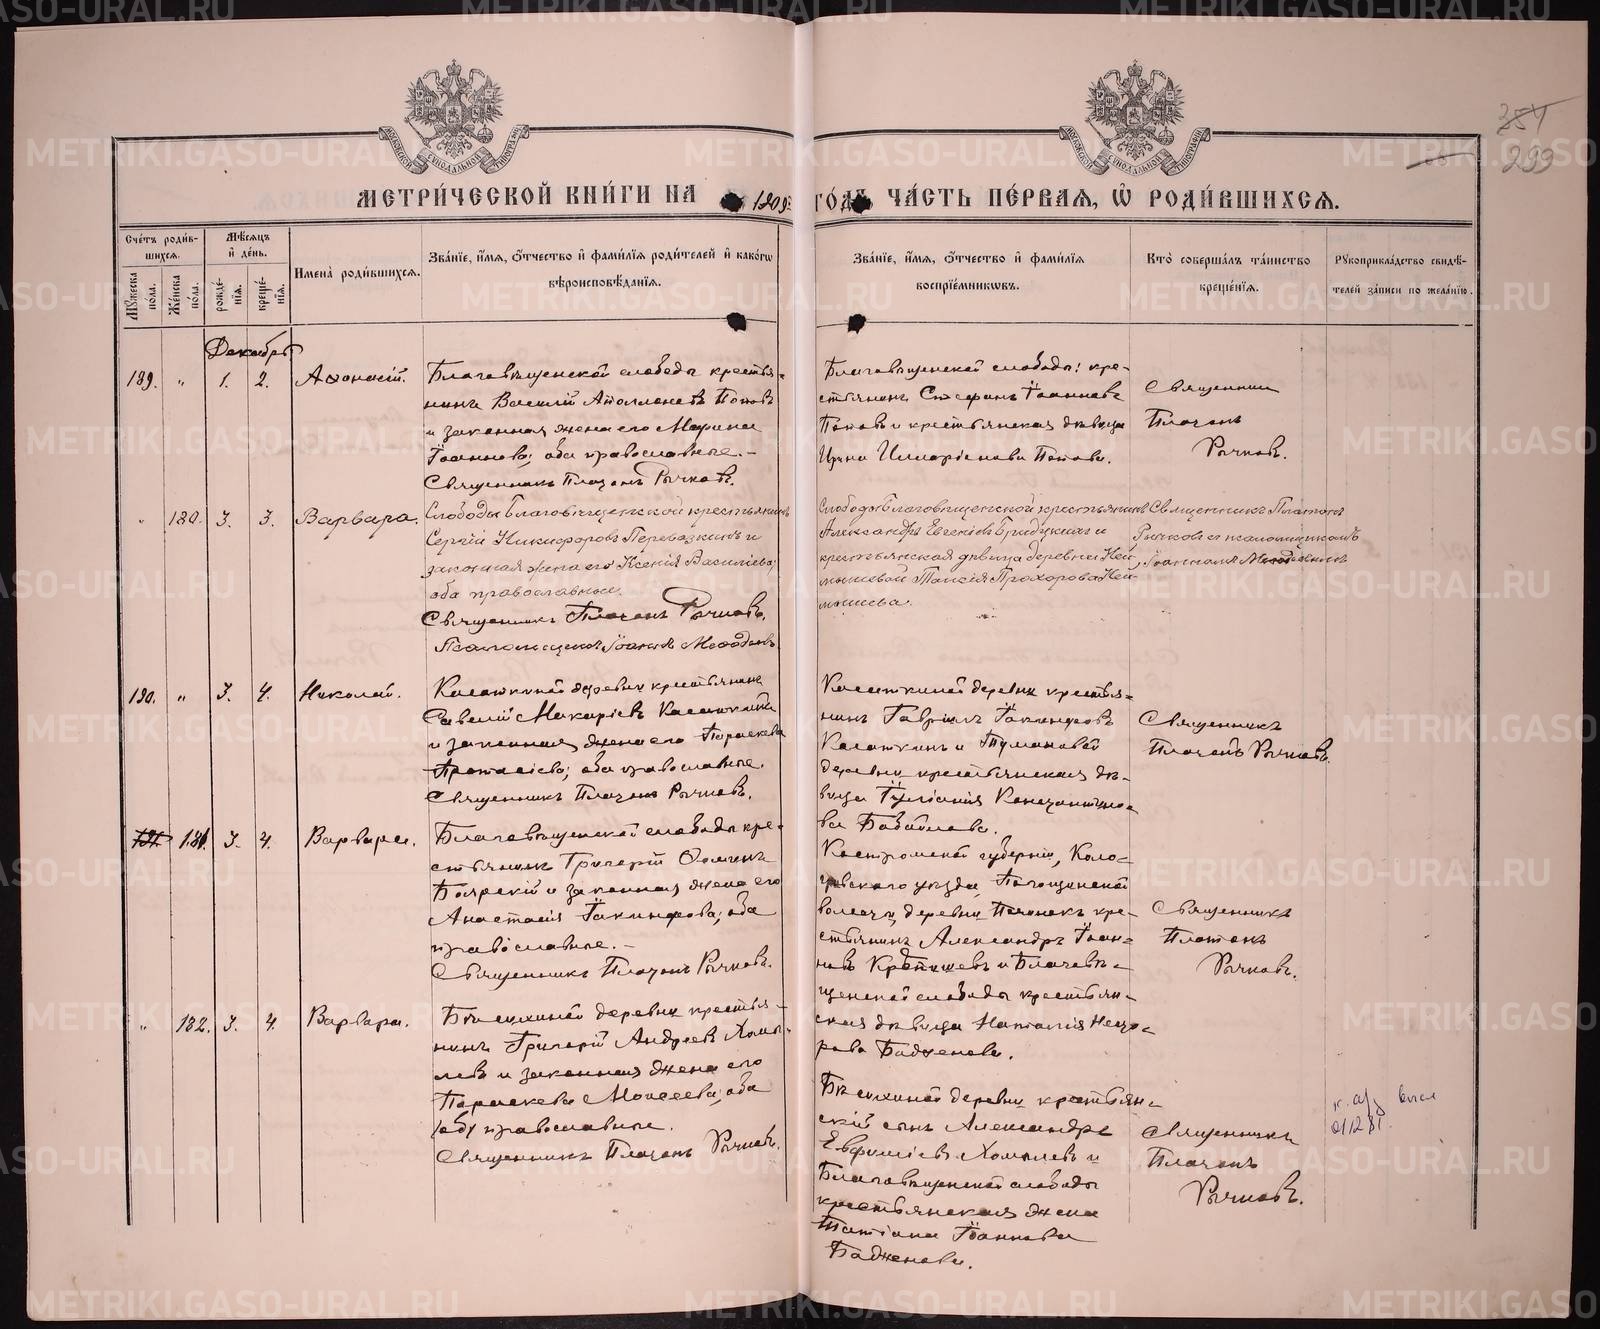 МЕТРИ́ЧЕСКОЙ КНИ́ГИ НА 1909
ГО́ДЪ ЧА́СТЬ ПЕ́РВАЯ, Ѡ҆ РОДИ́ВШИХСЯ.
254
299
Сче́тъ роди́вшихся.
Мꙋ́жеска по́ла.
Же́нска по́ла.
Мѣ́сяцъ и҆ де́нь.
рожде́нїя.
креще́нїя.
И҆мена̀ роди́вшихся.
Зва́нїе, и҆́мя, ѻ҆́тчество и҆ фами́лїя роди́телей и҆ како́гѡ
вѣроисповѣ́данїя.
Зва́нїе, и҆́мя, ѻ҆́тчество и҆ фами́лїя
воспрїе́мникѡвъ.
Кто̀ соверша́лъ та́инство
креще́нїя.
Рꙋкоприкла́дство свидѣ́-
телей за́писи по жела́нїю.
Декабрь
189. " 1. 2. Аѳонасій.
Благовѣщенской слободы крестья-
нинъ Василій Аполлоновъ Поповъ
и законная жена его Марина
Іоаннова; оба православные. -
Священникъ Платонъ Рычковъ.
Благовѣщенской слободы: кре-
стьянинъ Стефанъ Іоанновъ
Поповъ и крестьянская дѣвица
Ирина Илларіонова Попова.
Священникъ
Платонъ
Рычковъ.
" 180. 3. 3. Варвара.
Слободы Благовѣщенской крестьянинъ
Сергій Никифоровъ Перевозкинъ и
законная жена его Ксенія Василіева;
оба православные.
Священникъ Платонъ Рычковъ.
Псаломщикъ Іоаннъ Меѳодіевъ
Слободы Благовѣщенской крестьянинъ
Александръ Евгеніевъ и
крестьянская дѣвица деревни Ней-
мышевой Таисія Прохорова Ней-
мышева.
Священникъ Платонъ
Рычковъ съ псаломщикомъ
Іоанномъ
190. " 3. 4. Николай.
Калашкиной деревни крестьянинъ
Савелій Макаріевъ Калашкинъ
и законная жена его Параскева
Протасіева; оба православные.
Священникъ Платонъ Рычковъ.
Калашкиной деревни крестья-
нинъ Гавріилъ Іакинфовъ
Калашкинъ и Тумановой
деревни крестьянская дѣ-
вица Іуліанія Константино-
ва Бабайлова.
Священникъ
Платонъ Рычковъ.
181. 3. 4. Варвара.
Благовѣщенской слободы кре-
стьянинъ Григорій Ѳоминъ
Боярскій и законная жена его
Анастасія Іакинфова; оба
православные. -
Священникъ Платонъ Рычковъ.
Костромской губерніи, Коло-
гривского уѣзда,
волости, деревни Починокъ кре-
стьянинъ Александръ Іоан-
новъ и Благовѣ-
щенской слободы крестьян-
ская дѣвица Наталія Несто-
рова Бажденова.
Священникъ
Платонъ
Рычковъ.
" 182. 3. 4. Варвара.
деревни крестья-
нинъ Григорій Андреевъ Хомы-
левъ и законная жена его
Параскева Моисеева; оба
православные.
Священникъ Платонъ Рычковъ.
деревни крестьян-
скій сынъ Александръ
Евфиміевъ Хомылевъ и
Благовѣщенской слободы
крестьянская жена
Татіана Іоаннова
Бадженова.
Священникъ
Платонъ
Рычковъ.